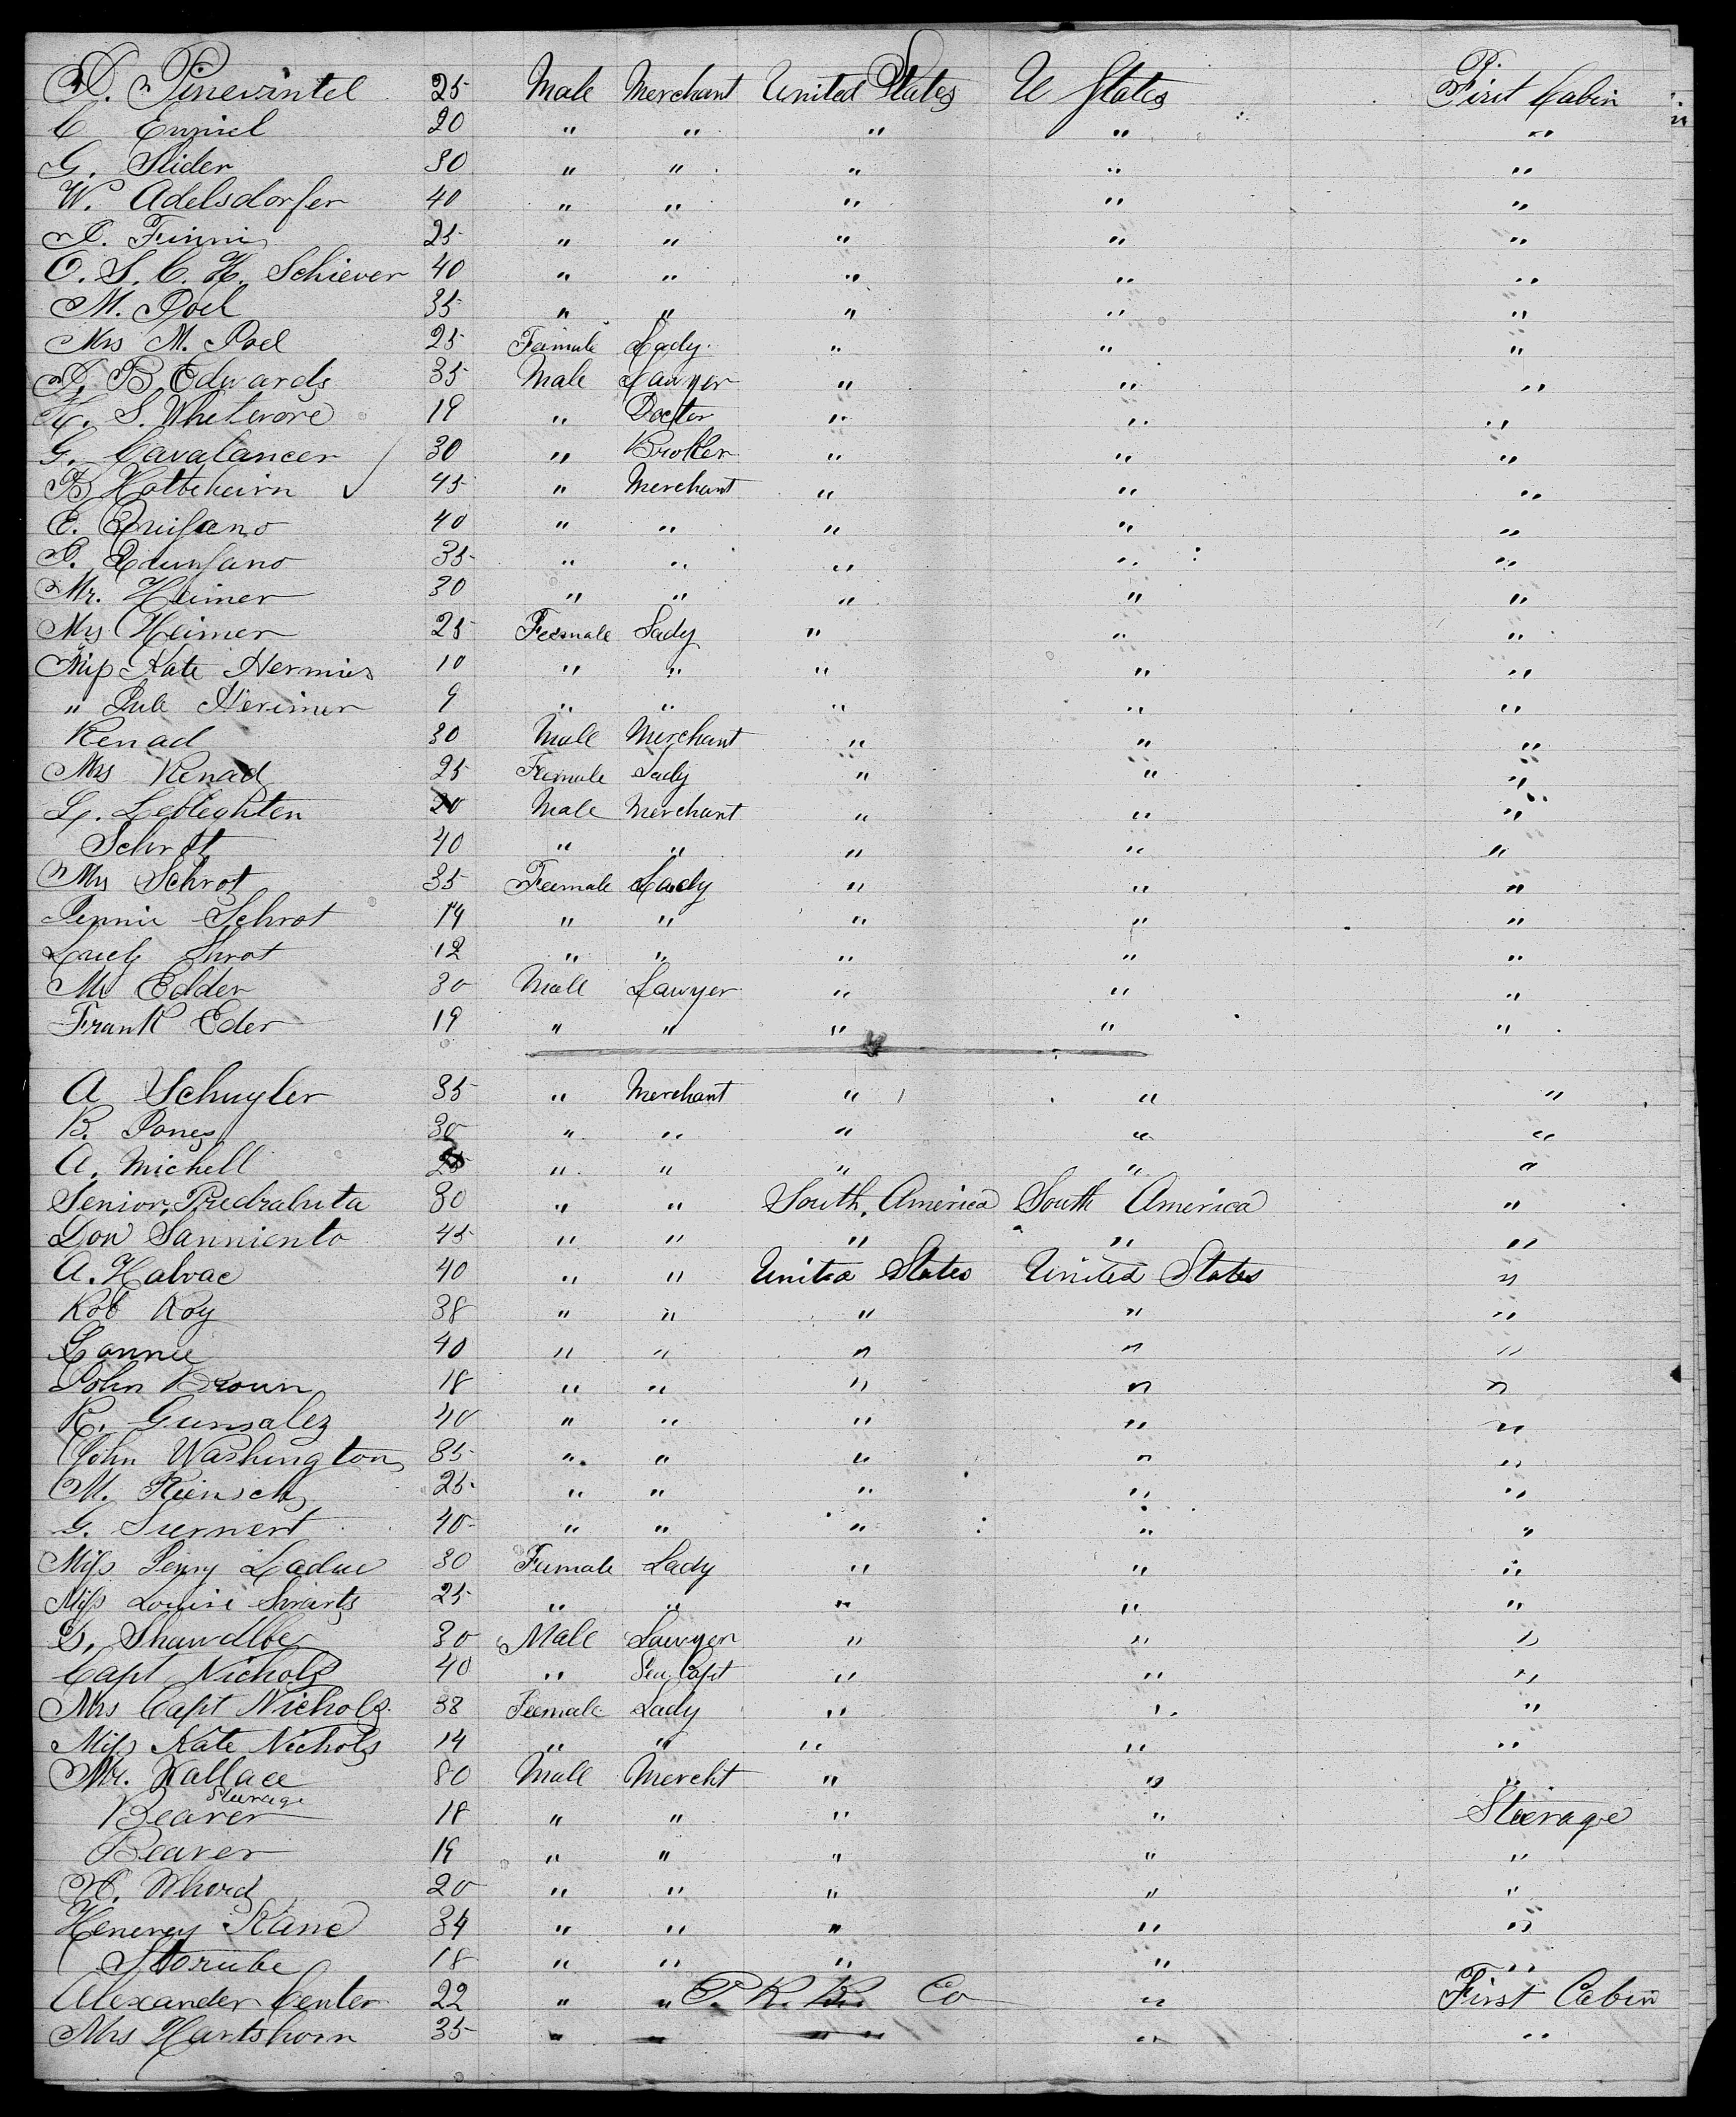 Pinevintel 25 Male Merchant United States U States First Cabin
C 20 " " " " "
G. Slider 30 " " " " "
W. Adelsdorfer 40 " " " " "
25 " " " " "
O. S. C. H. Schiever 40 " " " " "
M. Poel 35 " " " " "
Mrs M. Poel 25 Female Lady " " "
B Edwards 35 Male Lawyer " " "
H. S. Whitevore 19 " Docter " " "
G. Cavalancer 30 " Broker " " "
B 45 " Merchant " " "
E. 40 " " " " "
35 " " " " "
Mr. Heimer 30 " " " " "
Mrs Heimer 25 Feemale Lady " " "
Miss Kate Hermies 10 " " " " "
" Herimer 9 " " " " "
Renad 30 Male Merchant " " "
Mrs Renad 25 Female Lady " " "
20 Male Merchant " " "
Schrot 40 " " " " "
Mrs Schrot 35 Feemale Lady " " "
Jennie Schrot 14 " " " " "
Lucy Shrot 12 " " " " "
Mr Edder 30 Male Lawyer " " "
Frank Eder 19 " " " " "
A Schuyler 35 " Merchant " " "
B. Jones 30 " " " " "
A. Michell 25 " " " " "
Senior, Piedrahita 30 " " South, America South America "
Don Sanniento 45 " " " " "
A. Halvac 40 " " United States United States "
Rob Roy 38 " " " " "
Lannie 40 " " " " "
John Broun 18 " " " " "
R. Gunsalez 40 " " " " "
John Washington 35 " " " " "
M. Riensch 25 " " " " "
G. 40 " " " " "
Miss Jenny Laduc 30 Female Lady " " "
Miss Louise Swarts 25 " " " " "
30 Male Lawyer " " "
Capt Nichols 40 " Sea Capt " " "
Mrs Capt Nichols 38 Feemale Lady " " "
Miss Kate Nichols 14 " " " " "
Mr. Wallace 30 Male Mercht " " "
Steerage
Beaver 18 " " " " Steerage
Beaver 19 " " " " "
Whord 20 " " " " "
Henerey Kane 34 " " " " "
Storube 18 " " " " "
Alexander Center 22 " " P. R. R. Co " First Cabin
Mrs Hartshorn 35 " " " " "